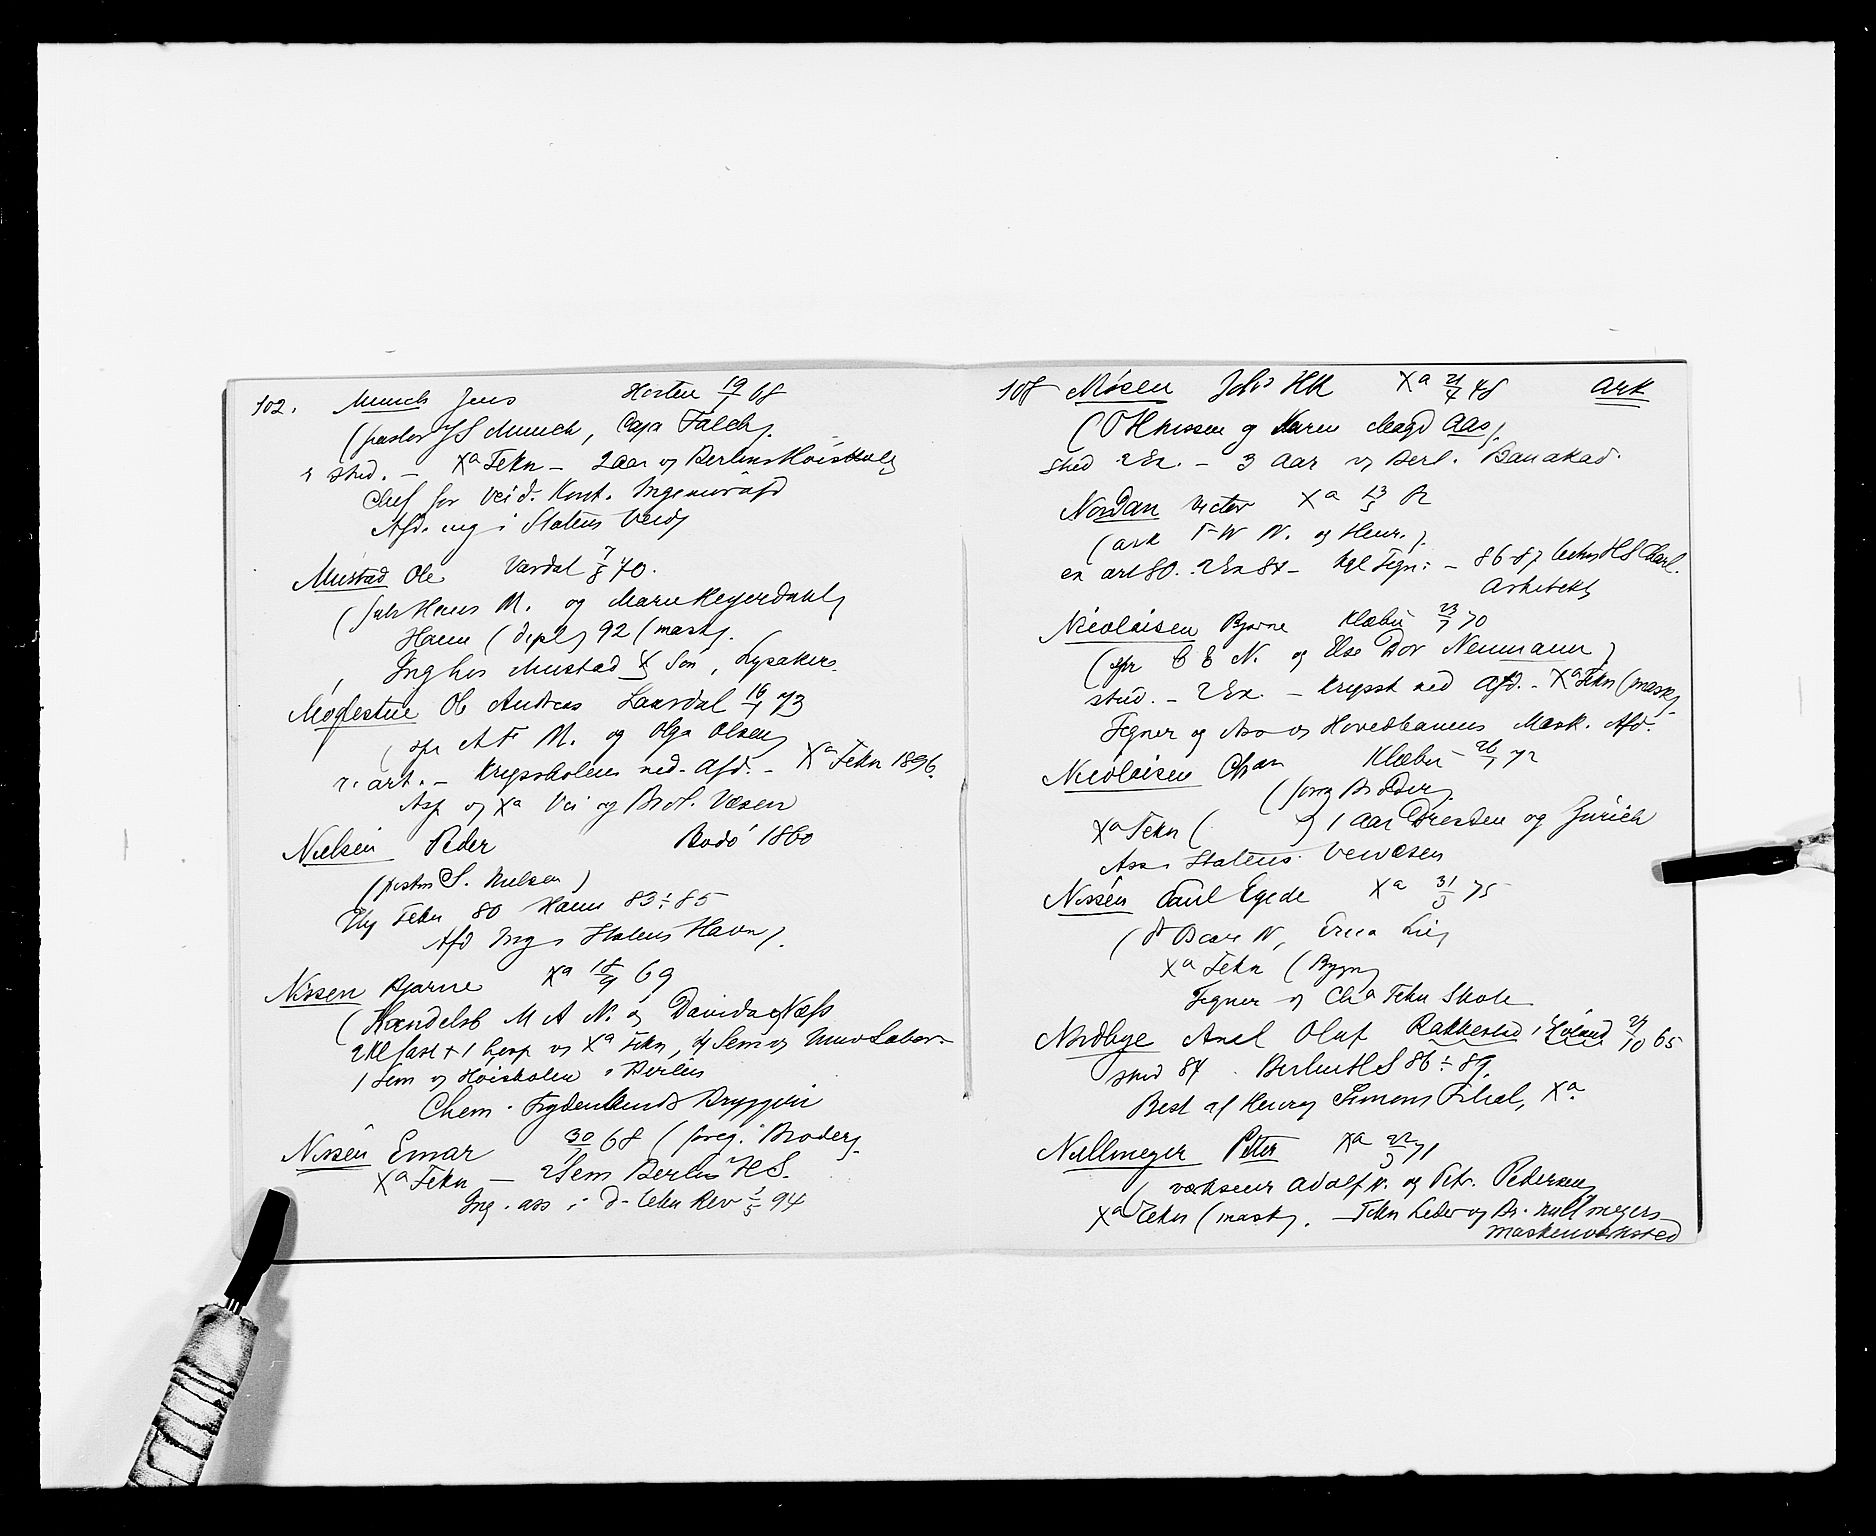 102. Munch Jens Horten 19/1 68
(pastor J S Munch, Caja Falch).
r stud. – Xa Tekn – 2 aar v Berlins Höiskole
Chef for Veid. Kont. Ingeniörafd
Afd. ing i Statens Veid
Mustad Ole Vardal 7/8 70.
(fabr Hans M. og Marie Heyerdahl)
Hann (dipl) 92 (mask).
Ing hos Mustad & Sön, Lysaker
Ol Andreas Laurdal 16/1 73
A F M. og Olga Olsen)
r. art. – Krigsskolens ned. Afd. – Xa Tekn 1896.
Asp v Xa Vei og Væsen
Nielsen Peder Bodö 1860
S. Nielsen)
Tekn 80 Hann 83÷85
Afd Ing i Statens Havnv.
Nissen Bjarne Xa 18/9 69
(Handelsb M A N. og Davida Næss
2 Kl fast + 1 hosp v Xa Tekn, 4 Sem v Univ Labor.
1 Sem v Höiskolen i Berlin
Chem. Frydenlunds Bryggeri
Nissen Einar 30/1 68 (foreg. Broder)
Xa Tekn – 2 Sem Berlin H S.
Ing. ass i d. tekn Rev 1/5 94
108 Nissen Johs H K Xa 21/4 48 Ark
(O H Nissen og Karen Magd Aas).
stud 2 Ex. – 3 Aar v Berl. Bauakad.
Nordan Victor Xa 13/5 62
(ark F W N. og Henr.).
ex art 80. 2 Ex 84 – Kgl Tegn: – 86-87 techn H S Charl.
Arkitekt
Nicolaisen Bjarne Klæbu 23/7 70
C E N. og Else Dor Neumann)
stud. – 2 Ex. – Krigssk ned Afd. – Xa Tekn (mask)
Tegner og Ass v Hovedbanens Mask. Afd.
Nicolaisen Chan Klæbu 26/7 72
(foreg Broder)
Xa Tekn ( ) 1 Aar Dresden og Zürich
Ass i Statens Veivæsen
Nissen Paul Egede Xa 31/3 75
(P Oscar N, Erica Lie)
Xa Tekn (Bygn)
Tegner v Cha Tekn Skole
Nordbye Axel Oluf Rakkestad, 27/10 65
stud 84. Berlin H S 86÷89.
Best af Henry Simons Filial, Xa.
Nullmeyer Peter Xa 22/3 71
Adolf N. og Petr. Pedersen)
Xa Tekn (mask). – Tekn Leder v Br. Nullmeyers
Maskinværksted